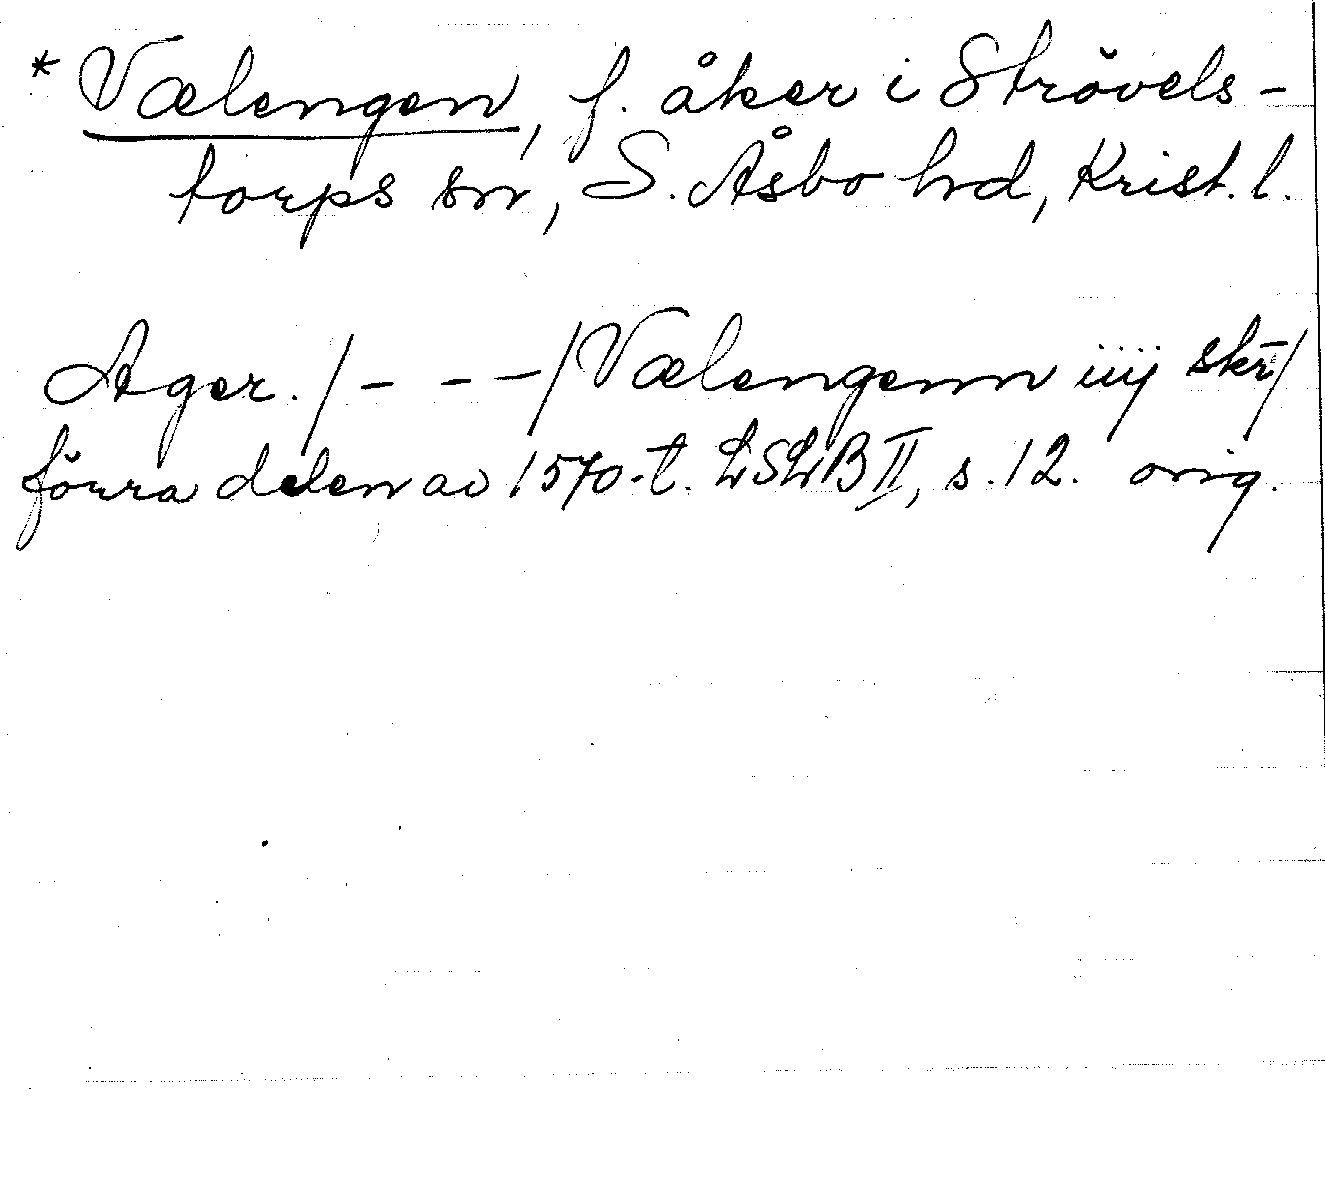 * Vælengen, f. åker i Strövels-
torps sn, S. Åsbo hd, Krist. l.
Ager. /- - -/ Vælengenn iiij skr̄/
förra delen av 1570-t. LSLB II, s. 12. orig.